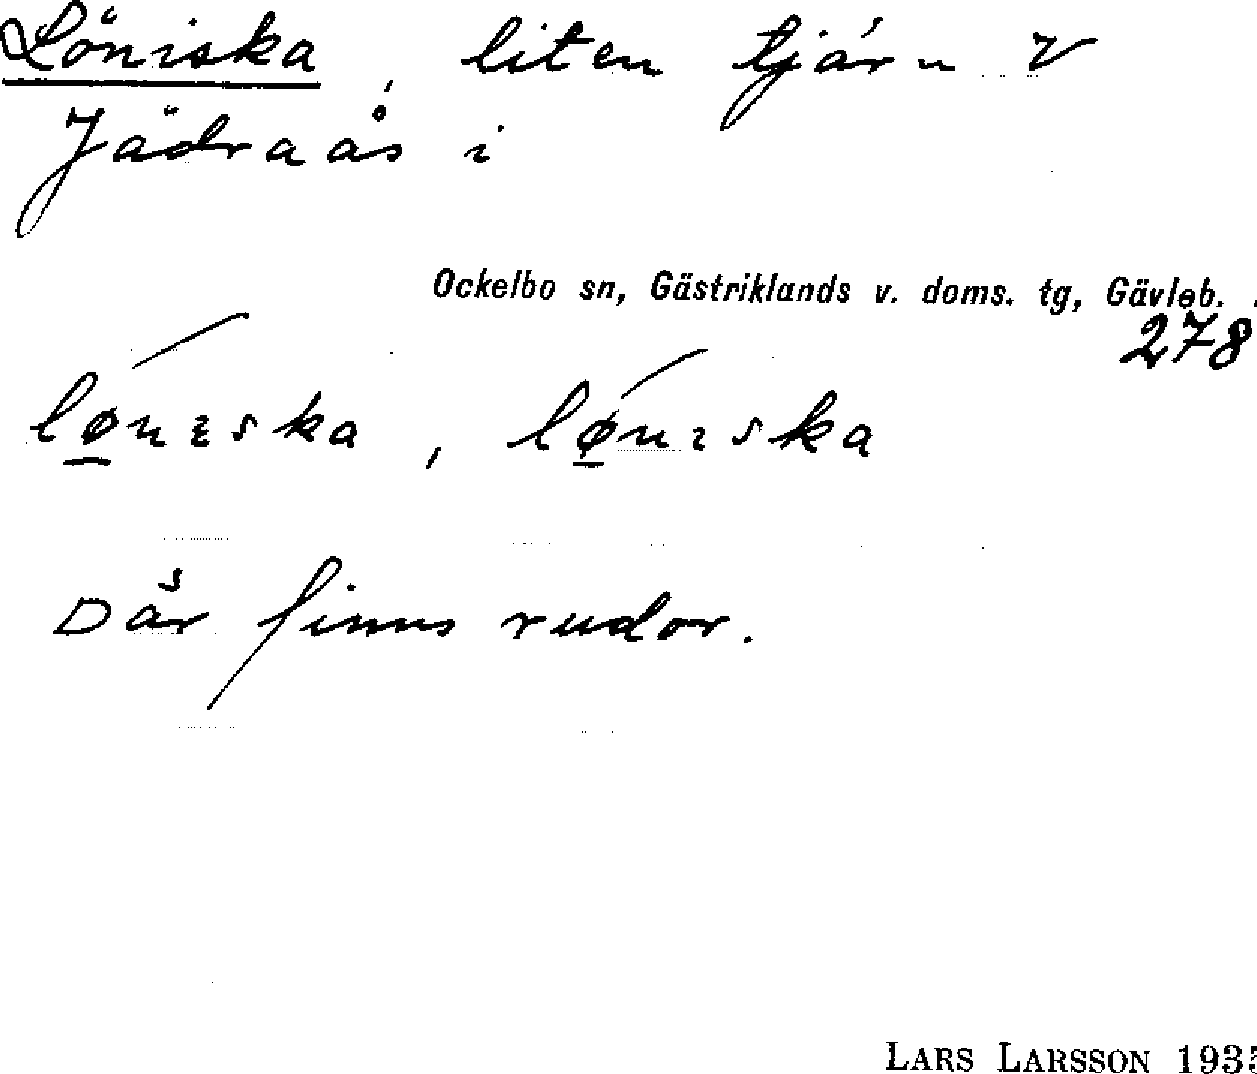 Löniska, liten tjärn V
Jädraås i
Ockelbo sn, Gästriklands v. doms. tg, Gävleb.
278
lønɛska, lønıska
Där finns rudor.
LARS LARSSON 193